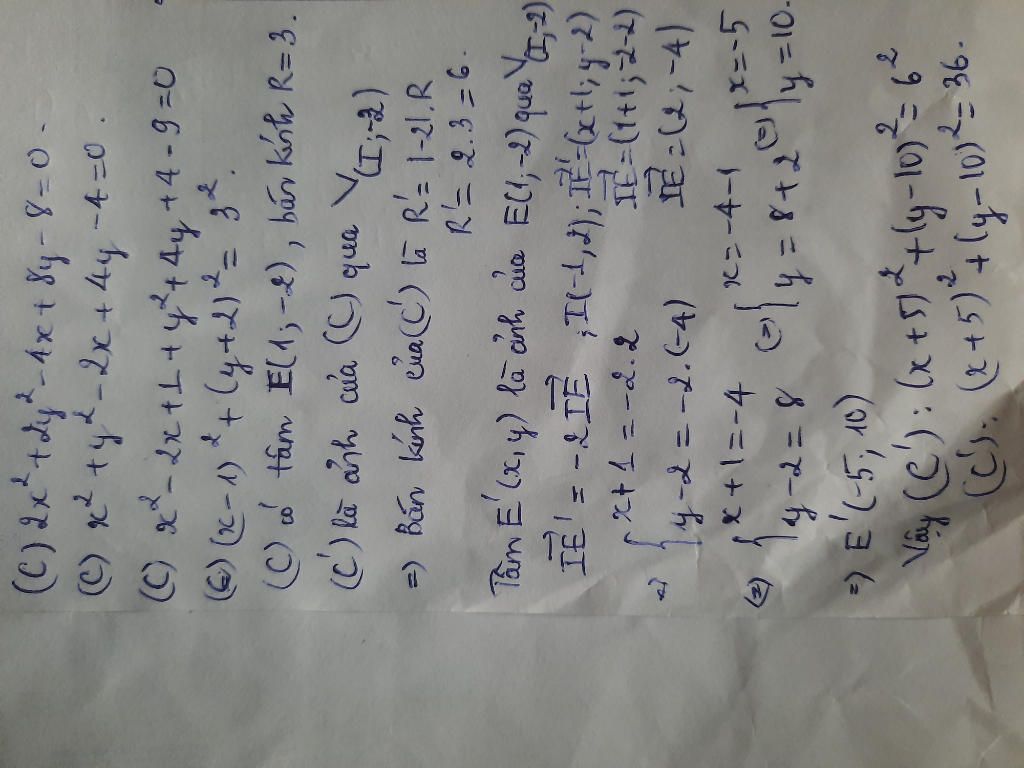 (C) 2x² + 2y² - 4x + 8y - 8 = 0.
(C) x² + y² - 2x + 4y - 4 = 0.
(C) x² - 2x + 1 + y² + 4y + 4 - 9 = 0
(C) (x - 1)² + (y + 2)² = 3².
(C) có tâm E(1; -2), bán kính R = 3.
(C') là ảnh của (C) qua V(I; -2)
=) Bán kính của (C') là R' = |-2|. R
R' = 2 . 3 = 6.
Tâm E'(x, y) là ảnh của E(1; -2) qua V(I; -2)
IE' = -2 IE ; I(-1, 2); IE' = (x+1; y-2)
{ x + 1 = -2. 2 IE = (1+1; -2-2)
=) { y - 2 = -2. (-4) IE = (2; -4)
{ x + 1 = -4 x = -4 - 1 { x = -5
(=) { y - 2 = 8 (=) { y = 8 + 2 (=) { y = 10.
=) E'(-5; 10)
Vậy (C') : (x + 5)² + (y - 10)² = 6²
(C') : (x + 5)² + (y - 10)² = 36.